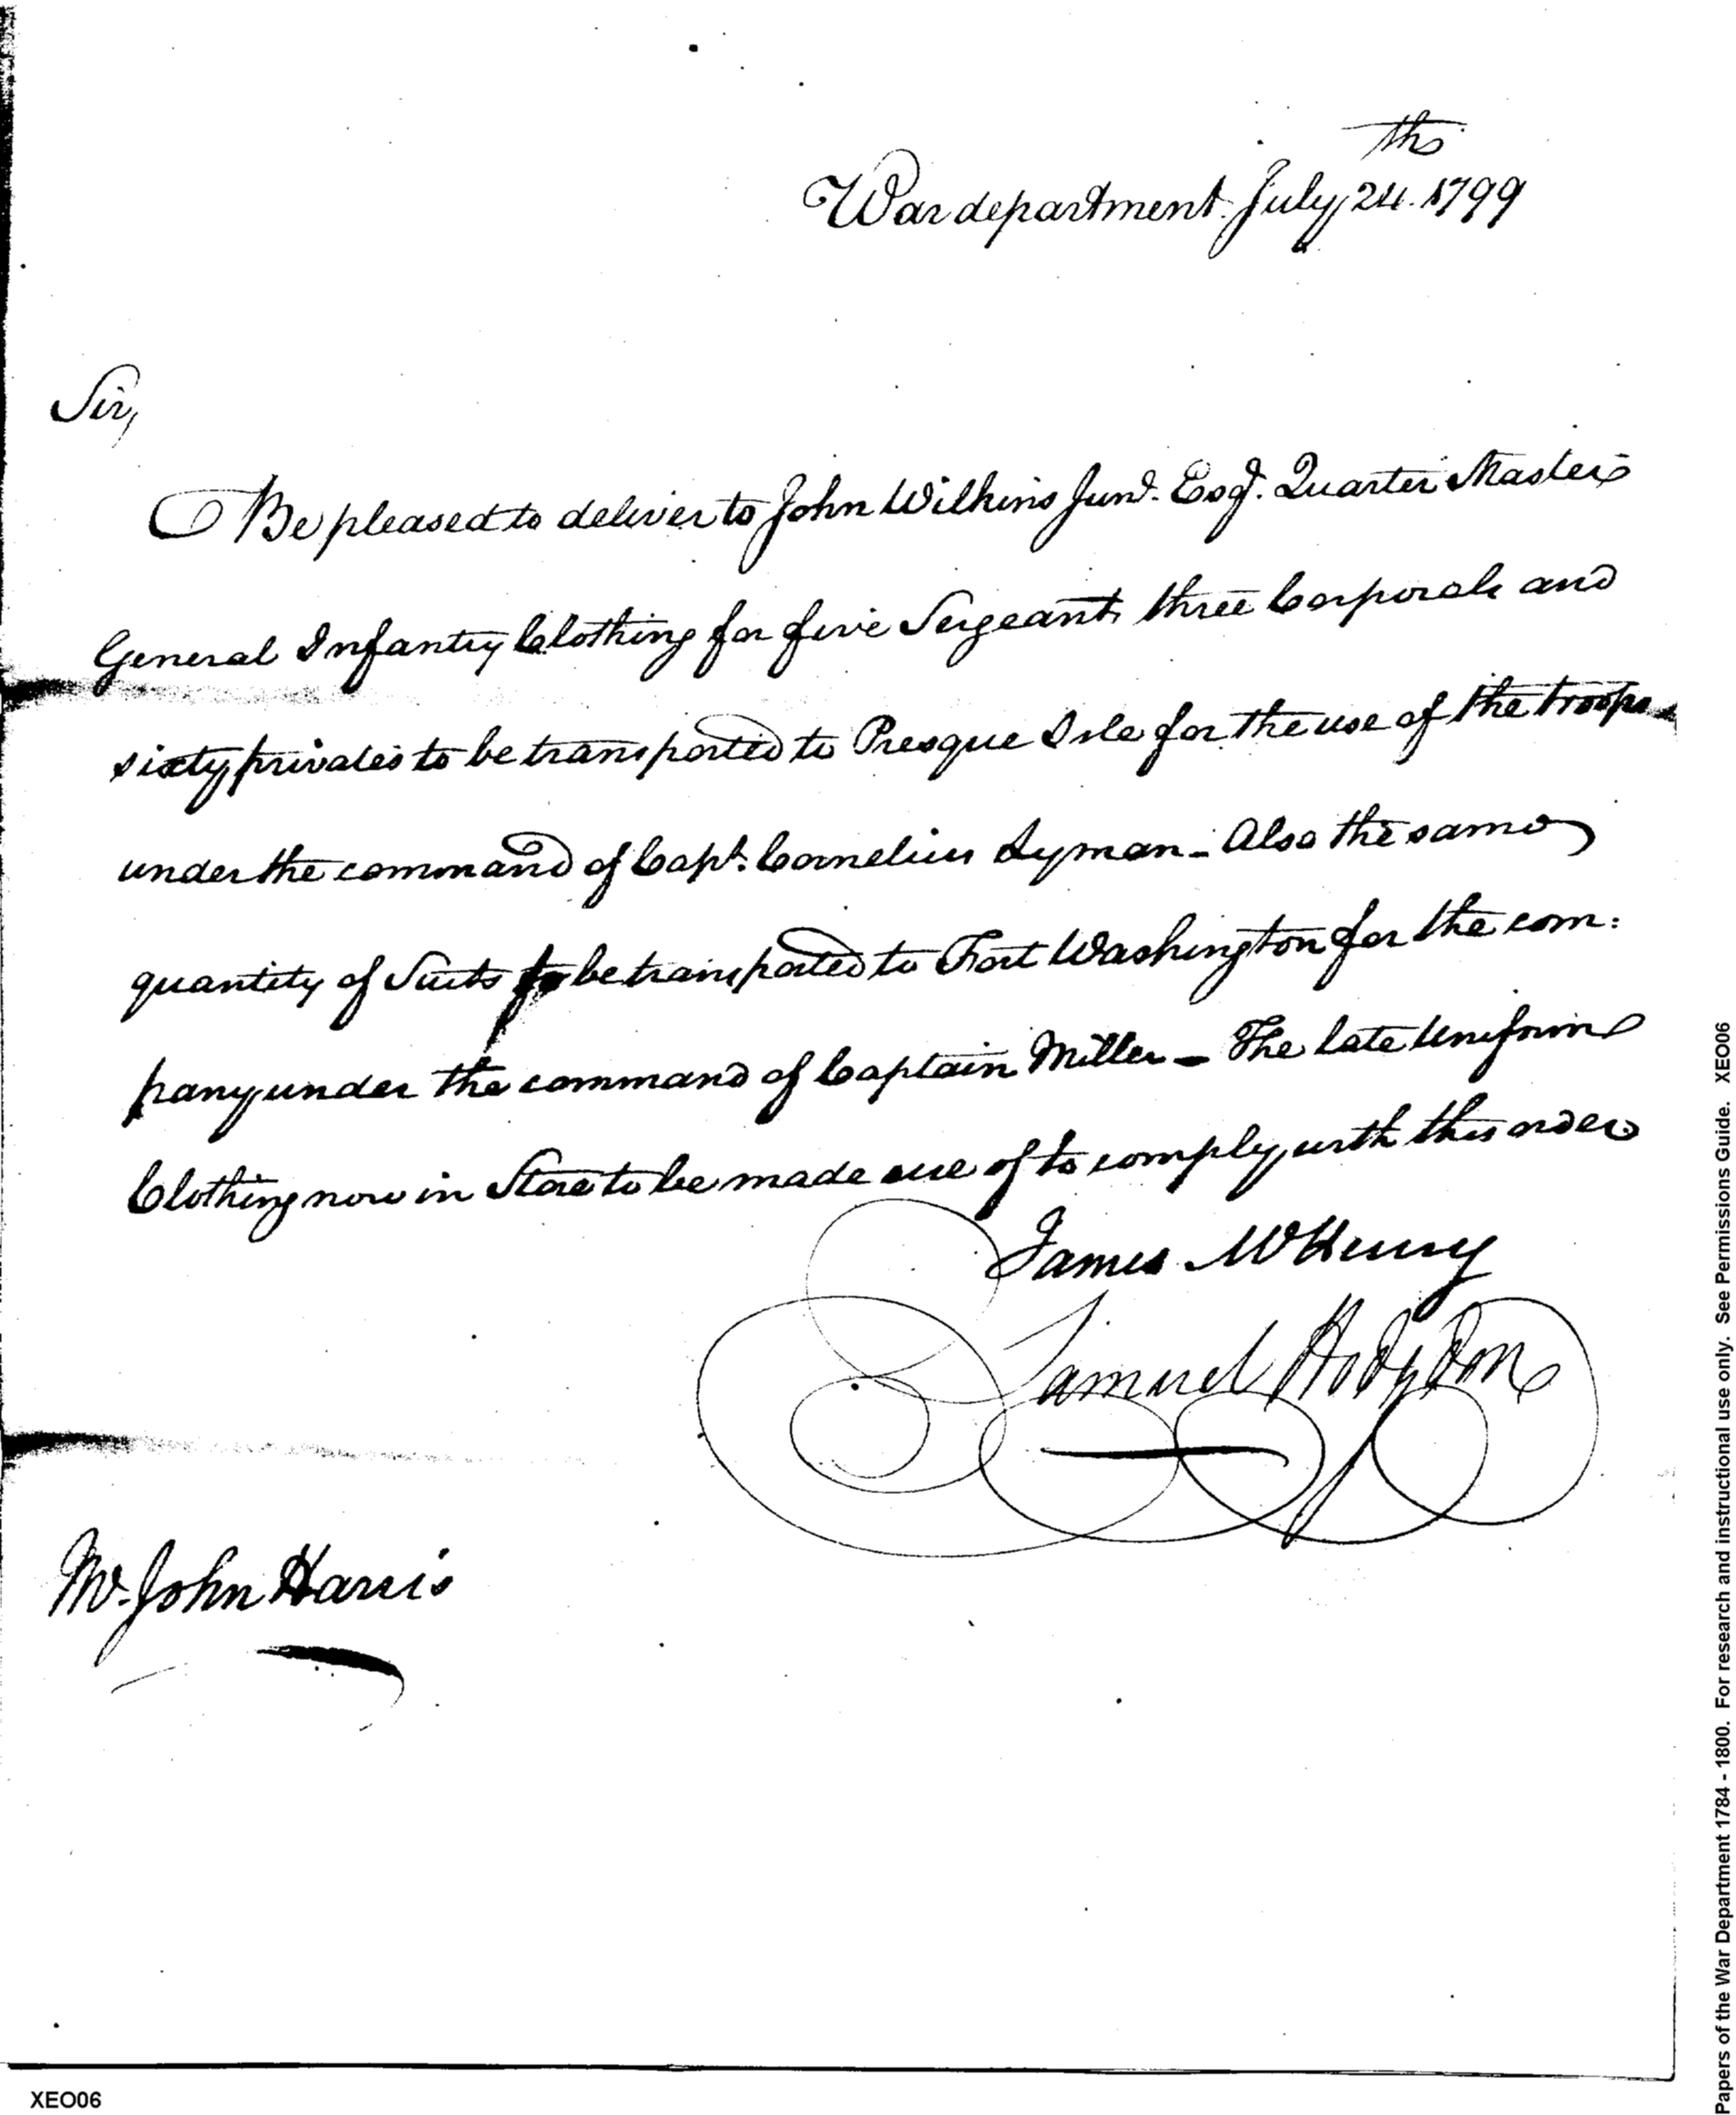 War department July 24th. 1799
Sir,
Be pleased to deliver to John Wilkins Junr. Esqr. Quarter Master
General Infantry Clothing for five Sergeants three Corporals and
sixty privates to be transported to Presque Isle for the use of the troops
under the command of Capt. Cornelius Lyman - Also the same
quantity of Suits to be transported to Fort Washington for the com:
pany under the command of Captain Miller - The late Uniform
Clothing now in Store to be made use of to comply with this order
James McHenry
Samuel Hodgdon
Mr. John Harris
XEO06
Papers of the War Department 1784 - 1800. For research and instructional use only. See Permissions Guide. XEO06